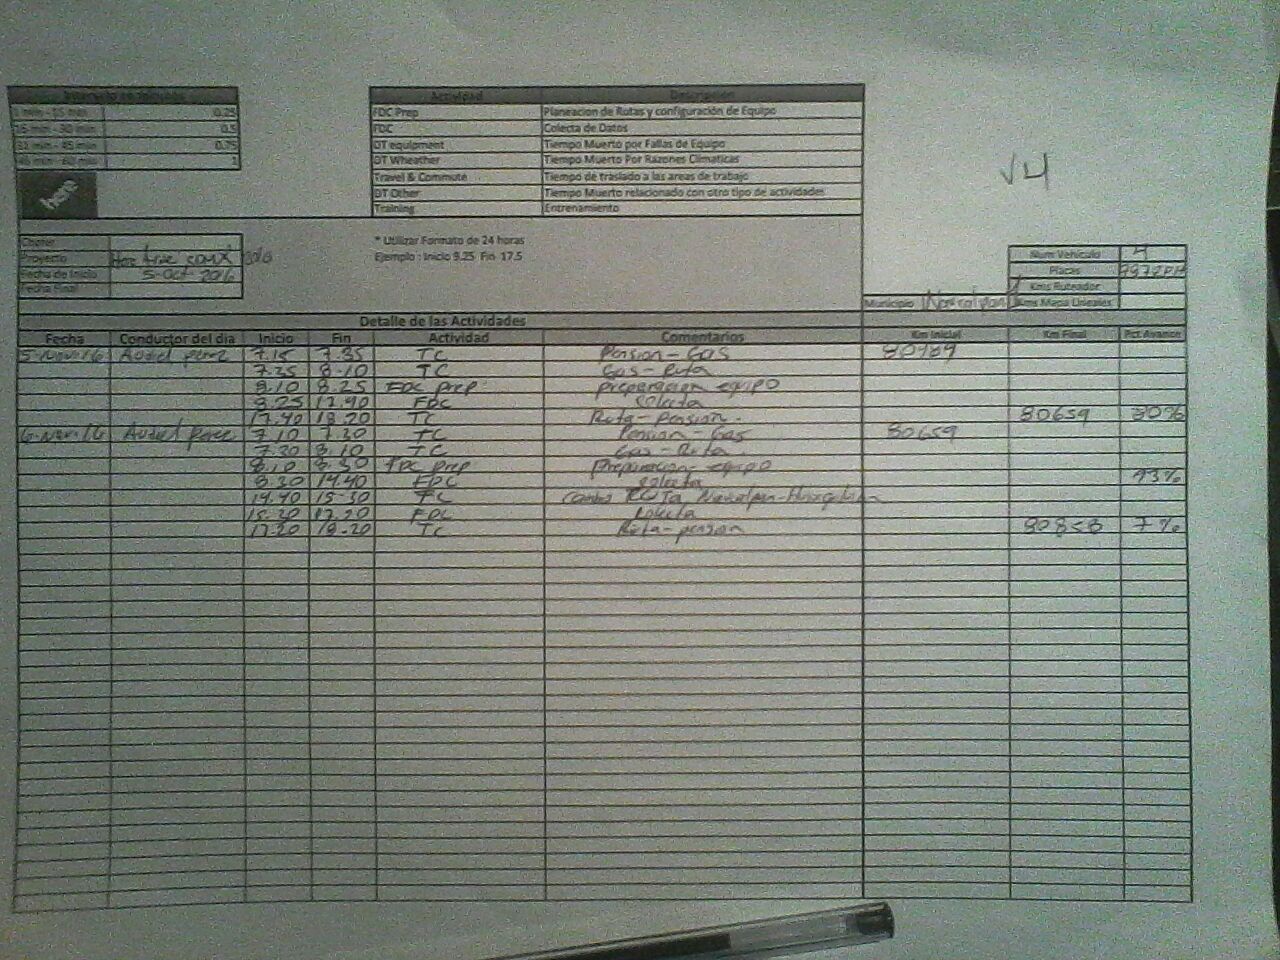 Intervalo en Minutos
1 min - 15 min 0.25
16 min - 30 min 0.5
31 min - 45 min 0.75
46 min - 60 min 1
Actividad Descripcion
FDC Prep Planeacion de Rutas y configuración de Equipo
FDC Colecta de Datos
DT equipment Tiempo Muerto por Fallas de Equipo
DT Wheather Tiempo Muerto Por Razones Climaticas
Travel & Commute Tiempo de traslado a las areas de trabajo
DT Other Tiempo Muerto relacionado con otro tipo de actividades
Training Entrenamiento
here
V4
* Utilizar Formato de 24 horas
Ejemplo : Inicio 9.25 Fin 17.5
Proyecto
Fecha de Inicio 5-Oct 2016
Fecha Final
Num Vehículo 4
Placas
Kms Ruteador
Municipio Kms Mapa Lineales
Detalle de las Actividades
Fecha Conductor del dia Inicio Fin Actividad Comentarios Km Inicial Km Final Pct Avance
5-Nov-16 Audiel perez 7.15 7.35 TC Pension-Gas 80489
7.35 8.10 TC Gas-Ruta
8.10 8.25 FDC prep preparacion equipo
8.25 17.40 FDC colecta
17.40 18.20 TC Ruta-pension. 80659 30%
6-Nov-16 Audiel perez 7.10 7.30 TC Pension-Gas 80659
7.30 8.10 TC Gas-Ruta.
8.10 8.30 FDC prep preparacion equipo
8.30 14.40 FDC colecta 93%
14.40 15-30 TC Cambio RUTA
15.30 17.20 FDC colecta
17.20 18.20 TC Ruta-pension 80858 7%